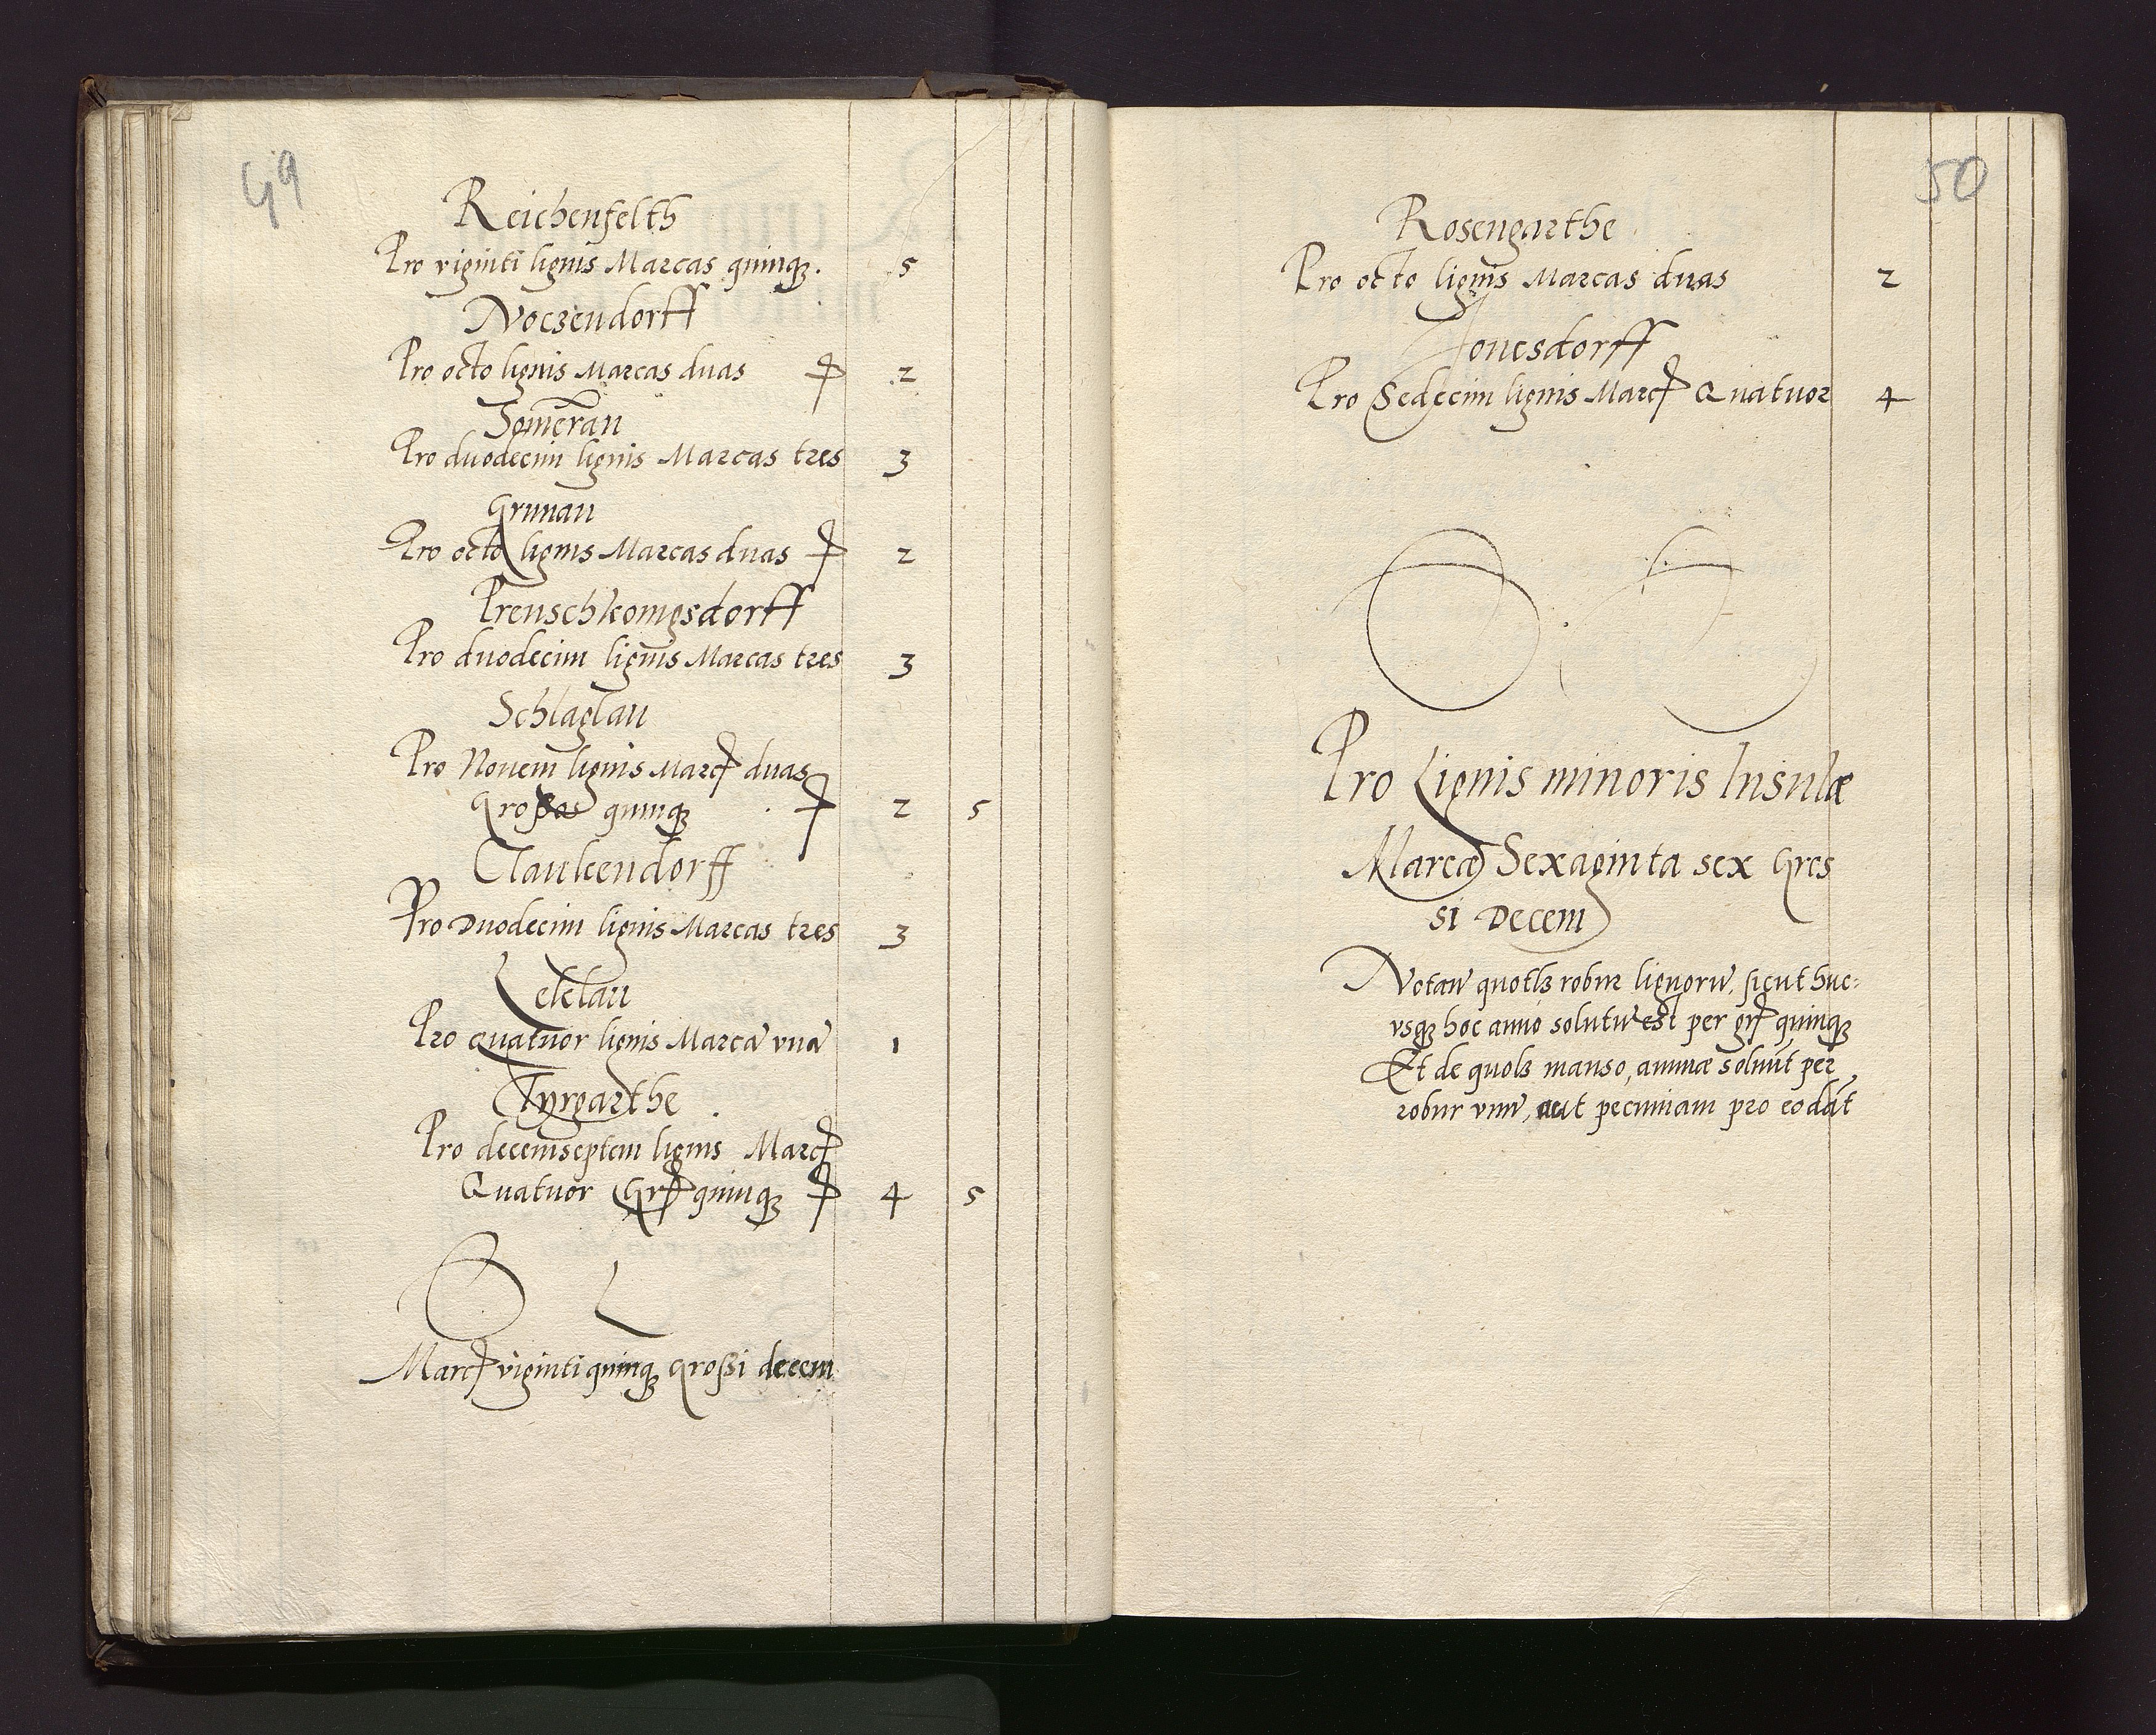 49
Reichenfelth
Pro viginti lignis Marcas quinqꝫ. 5
Noczendorff
Pro octo lignis Marcas duas 2
Som̃eran
Pro duodecim lignis Marcas tres 3
Grunau
Pro octo lignis Marcas duas 2
Preuschkonigsdorff
Pro duodecim lignis Marcas tres 3
Schlaglau
Pro Nouem lignis Marcꝭ duas
Großos quinqꝫ 2 5
Claukendorff
Pro Duodecim lignis Marcas tres 3
Leklau
Pro quatuor lignis Marcã vnã 1
Tyrgarthe
Pro decemseptem lignis Marcꝭ
Quatuor Grꝭ quinqꝫ 4 5
Marcꝭ viginti quinqꝫ großi decem
50
Rosengarthe
Pro octo lignis Marcas duas 2
Jonesdorff
Pro Sedecim lignis Marcꝭ Quatuor 4
Pro Lignis minoris Insulæ
Marcæ Sexaginta sex Gros
si Decem
Notañ quotlꝫ robur lignorũ, sicut huc-
vsqꝫ hoc anno solutũ est per grꝭ quinqꝫ
Et de quolꝫ manso, annuæ soluũt per
robur vnũ, aut pecuniam pro eo dãt